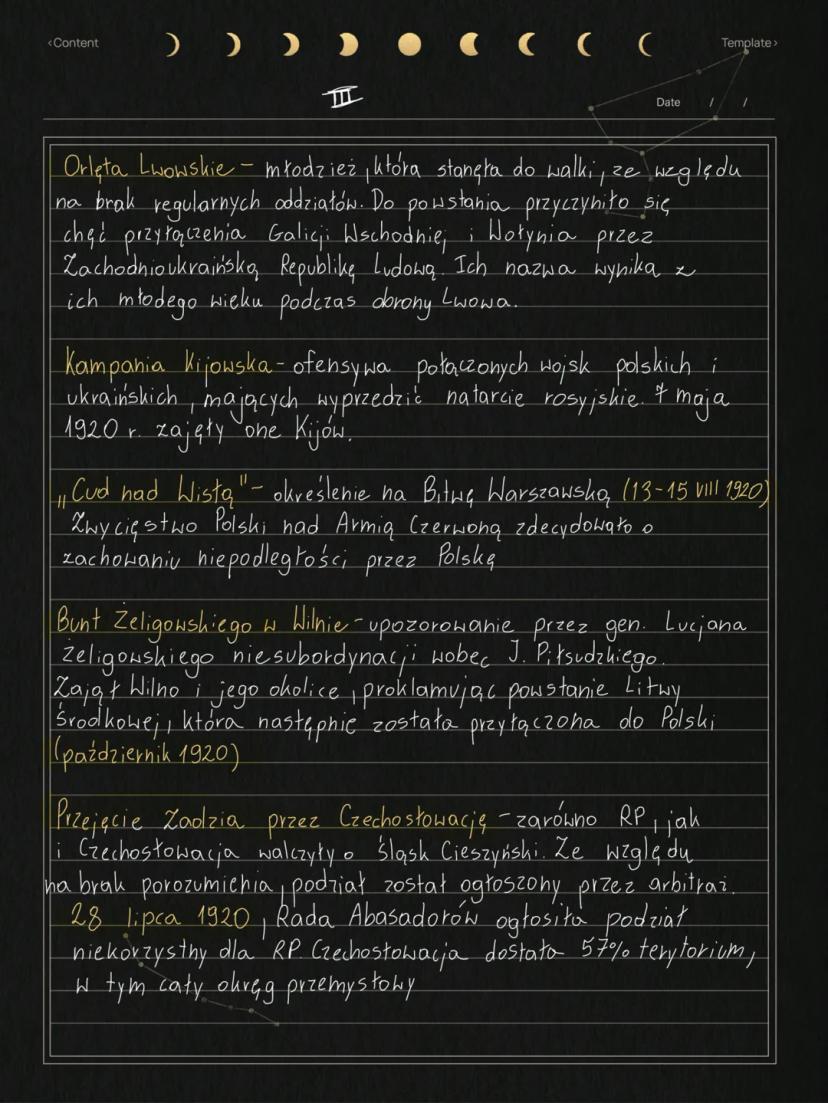 ‹Content
Template›
III
Date / /
Orlęta Lwowskie – młodzież, która stanęła do walki, ze względu
na brak regularnych oddziałów. Do powstania przyczyniło się
chęć przyłączenia Galicji Wschodniej i Wołynia przez
Zachodnioukraińską Republikę Ludową. Ich nazwa wynika z
ich młodego wieku podczas obrony Lwowa.
Kampania Kijowska – ofensywa połączonych wojsk polskich i
ukraińskich, mających wyprzedzić natarcie rosyjskie. 7 maja
1920 r. zajęły one Kijów.
„Cud nad Wisłą" – określenie na Bitwę Warszawską (13-15 VIII 1920)
Zwycięstwo Polski nad Armią Czerwoną zdecydowało o
zachowaniu niepodległości przez Polskę
Bunt Żeligowskiego w Wilnie – upozorowanie przez gen. Lucjana
Żeligowskiego niesubordynacji wobec J. Piłsudzkiego.
Zajął Wilno i jego okolice, proklamując powstanie Litwy
Środkowej, która następnie została przyłączona do Polski
(październik 1920)
Przejęcie Zaolzia przez Czechosłowację – zarówno RP, jak
i Czechosłowacja walczyły o Śląsk Cieszyński. Ze względu
na brak porozumienia, podział został ogłoszony przez arbitraż.
28 lipca 1920, Rada Abasadorów ogłosiła podział
niekorzystny dla RP. Czechosłowacja dostała 57% terytorium,
w tym cały okręg przemysłowy